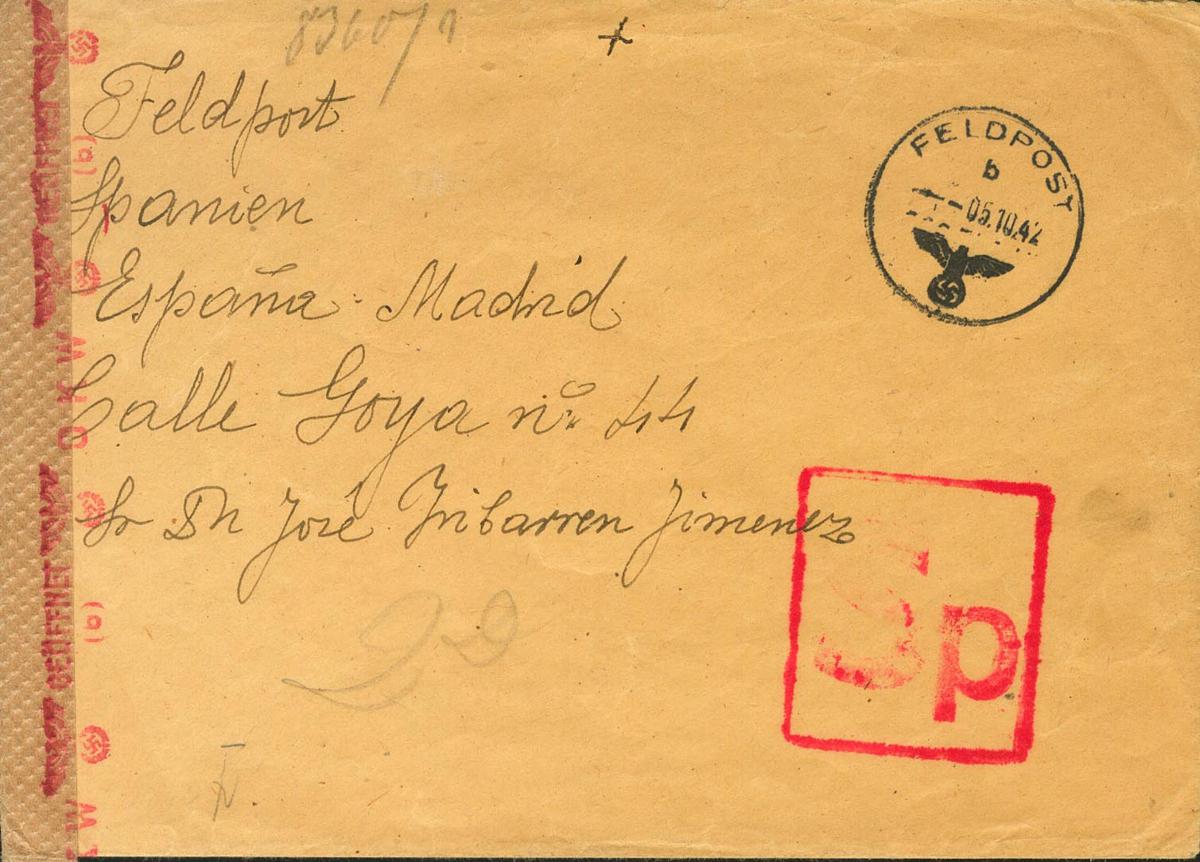 8360/1
Feldport
Spanien
España. Madrid
Calle Goya nº 44
Sr Dn José Iribarren Jimenez
FELDPOST
b
05.10.42
Sp
GEÖFFNET
(b)
OKW
GEÖFFNET
(b)
KW